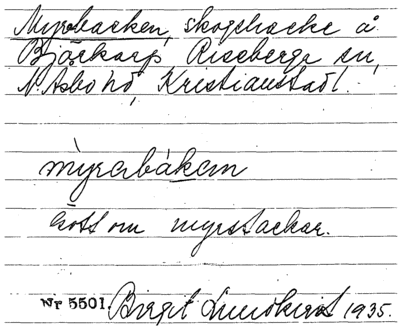 Myrbacken, skogsbacke å
Björkarp Riseberga sn,
N Åsbo hd, Kristianstads l.
myrerbáken
Gott om myrstackar.
Nr 5501. Birgit Lundkvist 1935.